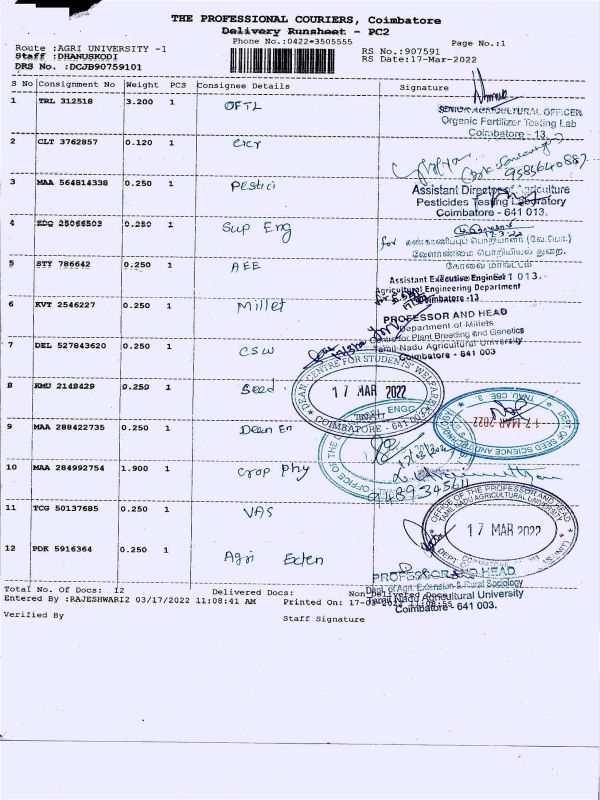 THE PROFESSIONAL COURIERS, Coimbatore
Delivery Runsheet - PC2
Phone No.:0422*3505555
Page No.:1
Route :AGRI UNIVERSITY -1
RS No.:907591
Staff :DHANUSKODI
RS Date:17-Mar-2022
DRS No. :DCJB90759101
S No Consignment No Weight PCS Consignee Details Signature
1 TRL 312518 3.200 1 OFTL
SENIOR AGRICULTURAL OFFICER
Organic Fertilizer Testing Lab
Coimbatore - 13.
2 CLT 3762857 0.120 1 CICR
9585640887
3 MAA 564814338 0.250 1 Pestici
Assistant Director of Agriculture
Pesticides Testing Laboratory
Coimbatore - 641 013.
4 EDQ 25066503 0.250 1 Sup Eng
for கண்காணிப்புப் பொறியாளர் (வே.பொ.)
வேளாண்மை பொறியியல் துறை.
கோவை மாவட்டம்
5 STY 786642 0.250 1 AEE
Assistant Executive Engineer
Agricultural Engineering Department
Coimbatore -13
6 KVT 2546227 0.250 1 Millet
PROFESSOR AND HEAD
Department of Millets
Centre for Plant Breeding and Genetics
Tamil Nadu Agricultural University
Coimbatore - 641 003
7 DEL 527843620 0.250 1 CSW
DEAN CENTRE FOR STUDENTS' WELFARE
17 MAR 2022
TNAU
COIMBATORE - 641 003
8 KMU 2149429 0.250 1 Seed
DEPT. OF SEED SCIENCE AND TECHNOLOGY
TNAU, CBE 3
17 MAR 2022
9 MAA 288422735 0.250 1 Dean En
OFFICE OF THE
ENGG.
10 MAA 284992754 1.900 1 Crop Phy
9489345611
11 TCG 50137685 0.250 1 VAS
OFFICE OF THE PROFESSOR AND HEAD
TAMIL NADU AGRICULTURAL UNIVERSITY
17 MAR 2022
12 PDK 5916364 0.250 1 Agri Exten
PROFESSOR AND HEAD
Dept. of Agri. Extension & Rural Sociology
Tamil Nadu Agricultural University
Coimbatore - 641 003.
Total No. Of Docs: 12 Delivered Docs: Non-Delivered Docs:
Entered By :RAJESHWARI2 03/17/2022 11:08:41 AM Printed On: 17-03-2022 11:08:55
Verified By
Staff Signature